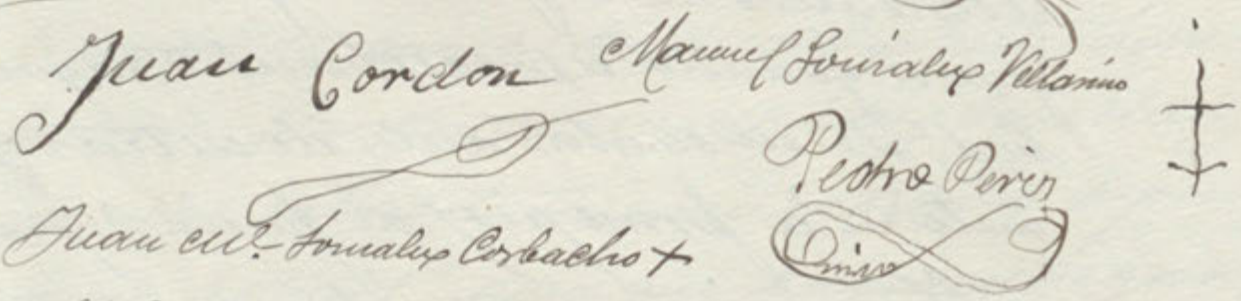 Juan Cordon Manuel Gonzalez Villarino
Pedro Perez
Juan Mª Gonzalez Corbacho +